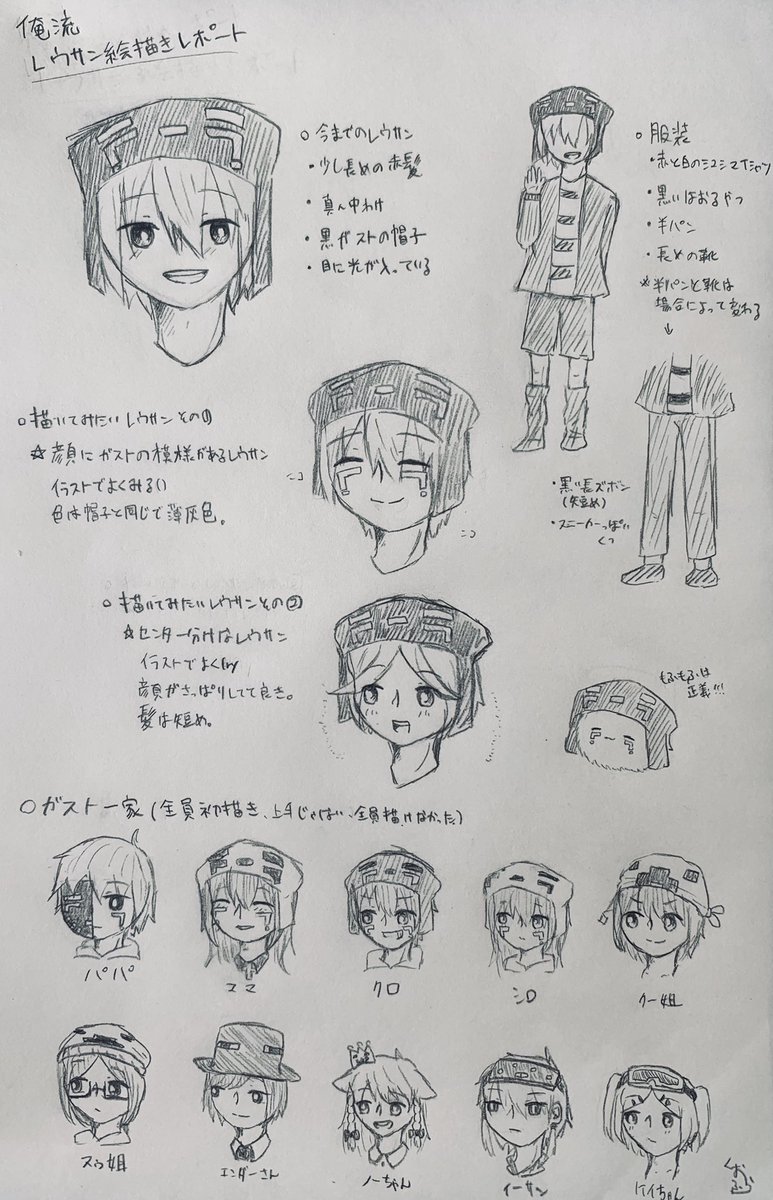 俺流
レウサン絵描きレポート
○今までのレウサン
・少し長めの赤髪
・真ん中わけ
・黒ガストの帽子
・目に光が入っている
○服装
・赤と白のシマシマTシャツ
・黒いはおるやつ
・半パン
・長めの靴
※半パンと靴は
場合によって変わる
↓
・黒い長ズボン
(短め)
・スニーカーっぽい
くつ
○描いてみたいレウサンその①
☆顔にガストの模様があるレウサン
イラストでよくみるい
色は帽子と同じで薄灰色。
○描いてみたいレウサンその②
☆センター分けなレウサン
イラストでよく
顔がさっぱりしてて良き。
髪は短め。
もふもふは
正義!!!
○ガスト一家(全員初描き、上手じゃない、全員描けなかった)
パパ
ママ
クロ
シロ
クー姐
スゥ姐
エンダーさん
ノーちゃん
イーサン
ケイちゃん